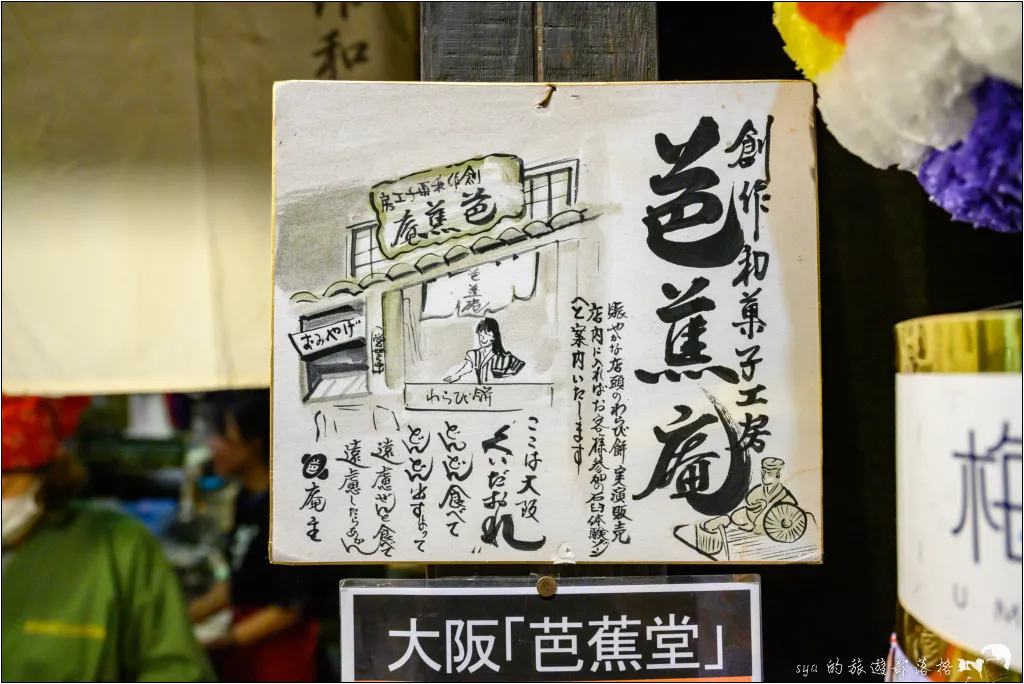 和
創作和菓子工房
芭蕉庵
賑やかな店頭のわらび餅実演販売
店内に入ればお客様参加の石臼体験ゾーン
へと案内いたします
創作和菓子工房
芭蕉庵
芭蕉庵
おみやげ
営業中
わらび餅
ここは大阪
"くいだおれ"
どんどん食べて
どんどん出すよって
遠慮せんと食べて
遠慮したらあかん
庵主
大阪「芭蕉堂」
梅
UM
sya 的旅遊部落格